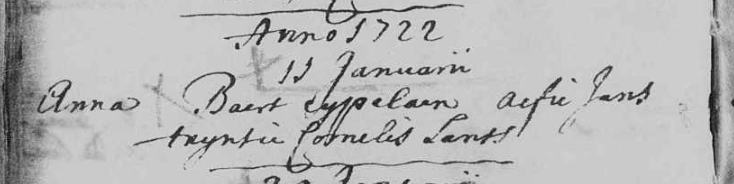 Anno 1722
11 Januarii
Anna Baert Cypelaen aefie Jans
tryntie Cornelis Lants